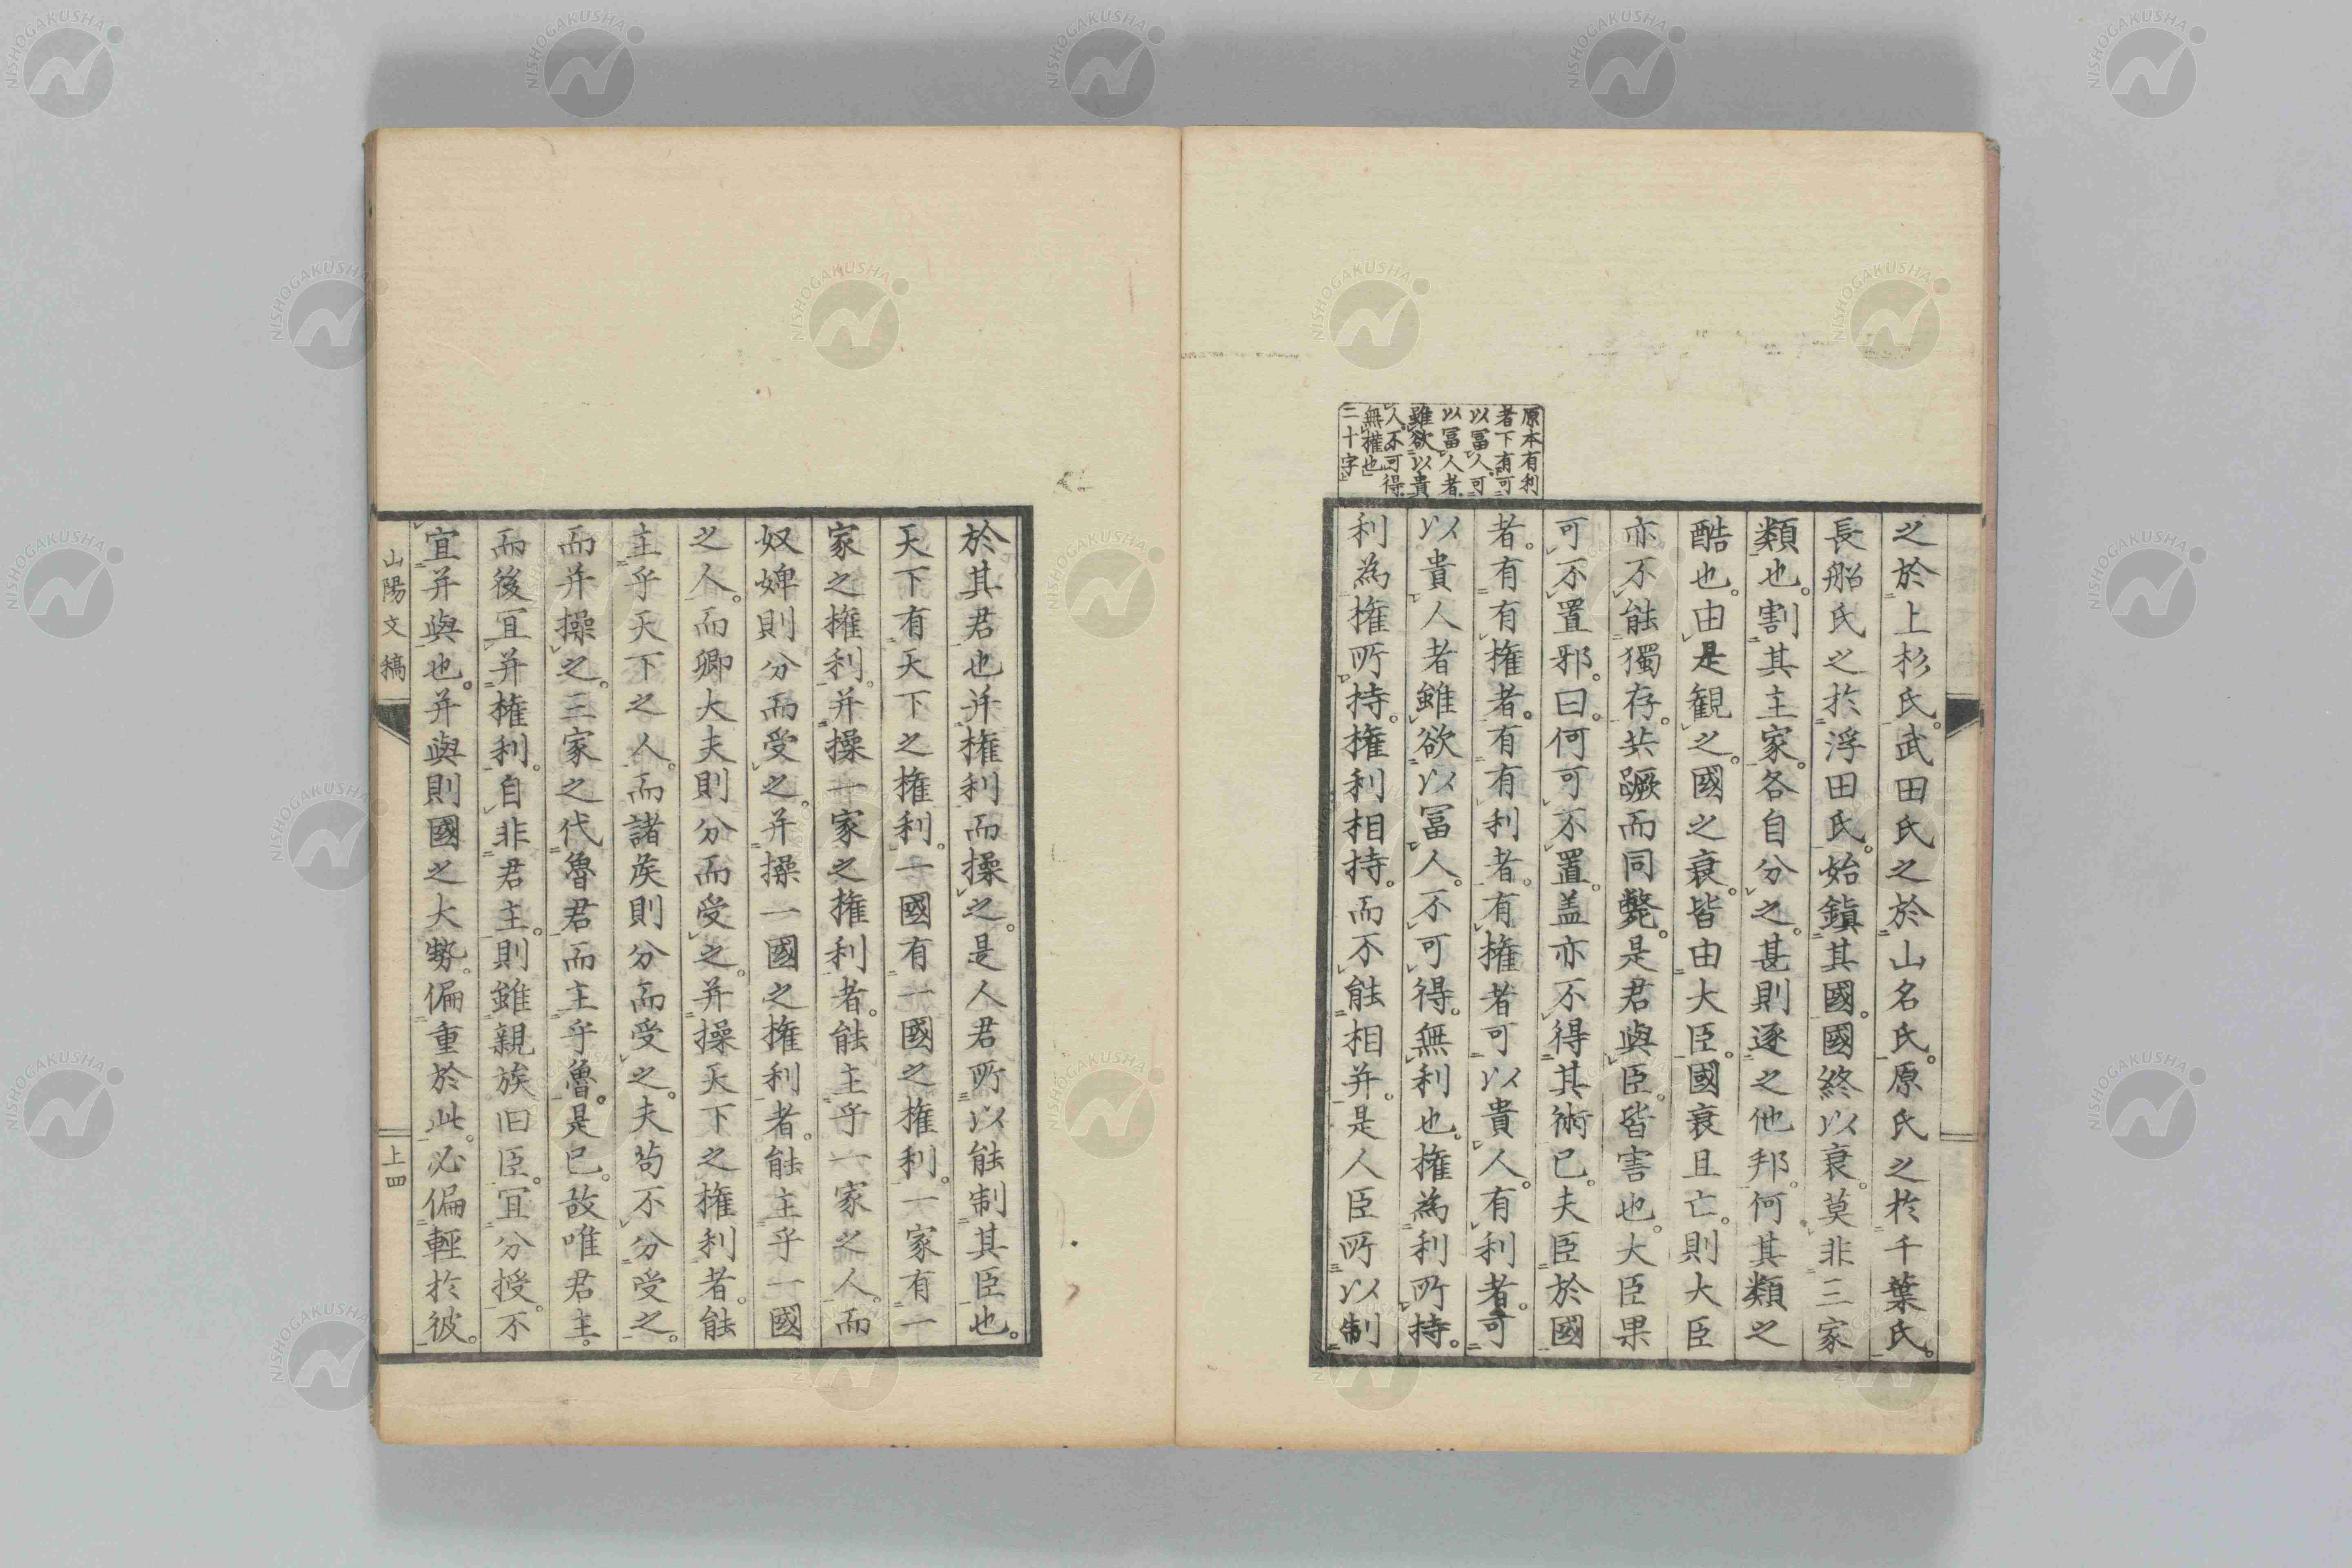 原本有利
者下有可
以冨人可
以冨人者
雖欲以貴
人不可得
無權也
二十字
之於上杉氏。武田氏之於山名氏。原氏之於千葉氏。
長船氏之於浮田氏。始鎮其國。國終以衰。莫非三家
類也。割其主家。各自分之。甚則逐之他邦。何其類之
酷也。由是観之。國之衰。皆由大臣。國衰且亡。則大臣
亦不能獨存。共蹶而同斃。是君與臣皆害也。大臣果
可不置邪。曰。何可不置。盖亦不得其術已。夫臣於國
者。有有権者。有有利者。有権者可以貴人。有利者。可
以貴人者雖欲以冨人。不可得。無利也。権為利所持。
利為権所持。権利相持。而不能相并。是人臣所以制
於其君也。并権利而操之。是人君所以能制其臣也。
天下有天下之権利。一國有一國之権利。一家有一
家之権利。并操一家之権利者。能主乎一家之人。而
奴婢則分而受之。并操一國之権利者。能主乎一國
之人。而卿大夫則分而受之。并操天下之権利者。能
主乎天下之人。而諸矦則分而受之。夫苟不分受之。
而并操之。三家之代魯君而主乎魯。是已。故唯君主。
而後宜并権利。自非君主。則雖親族旧臣。宜分授。不
宜并與也。并與則國之大勢。偏重於此。必偏輕於彼。
山陽文稿
上四
NISHOGAKUSHA